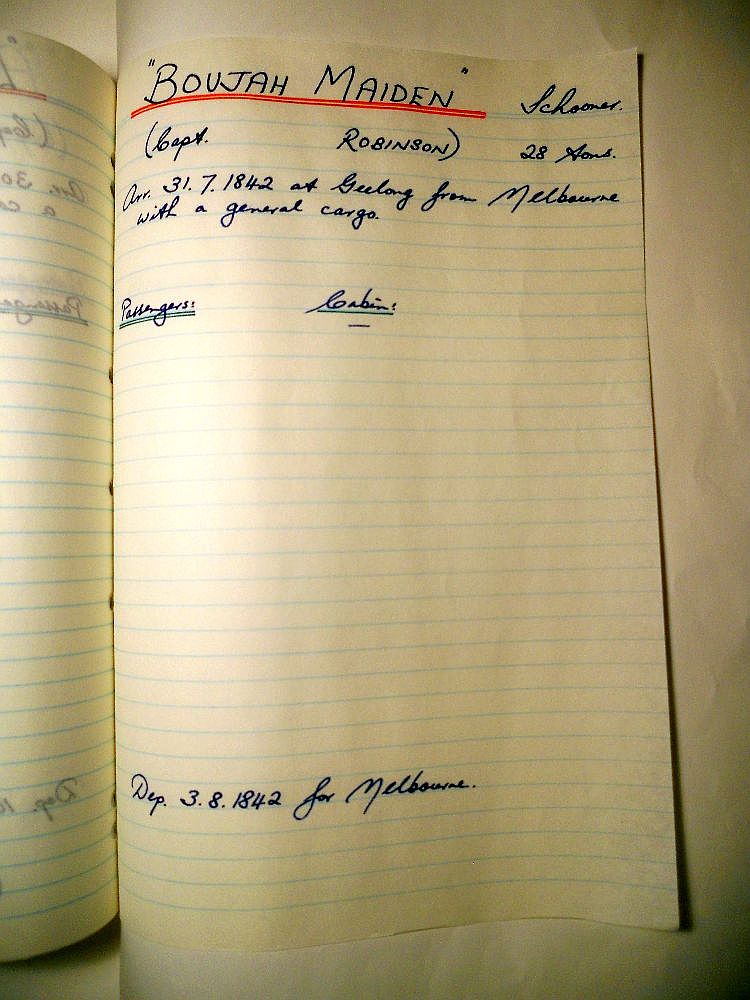 "BOUJAH MAIDEN" Schooner.
(Capt. ROBINSON) 28 tons.
Arr. 31.7.1842 at Geelong from Melbourne
with a general cargo.
Passengers: Cabin:
—
Dep. 3.8.1842 for Melbourne.